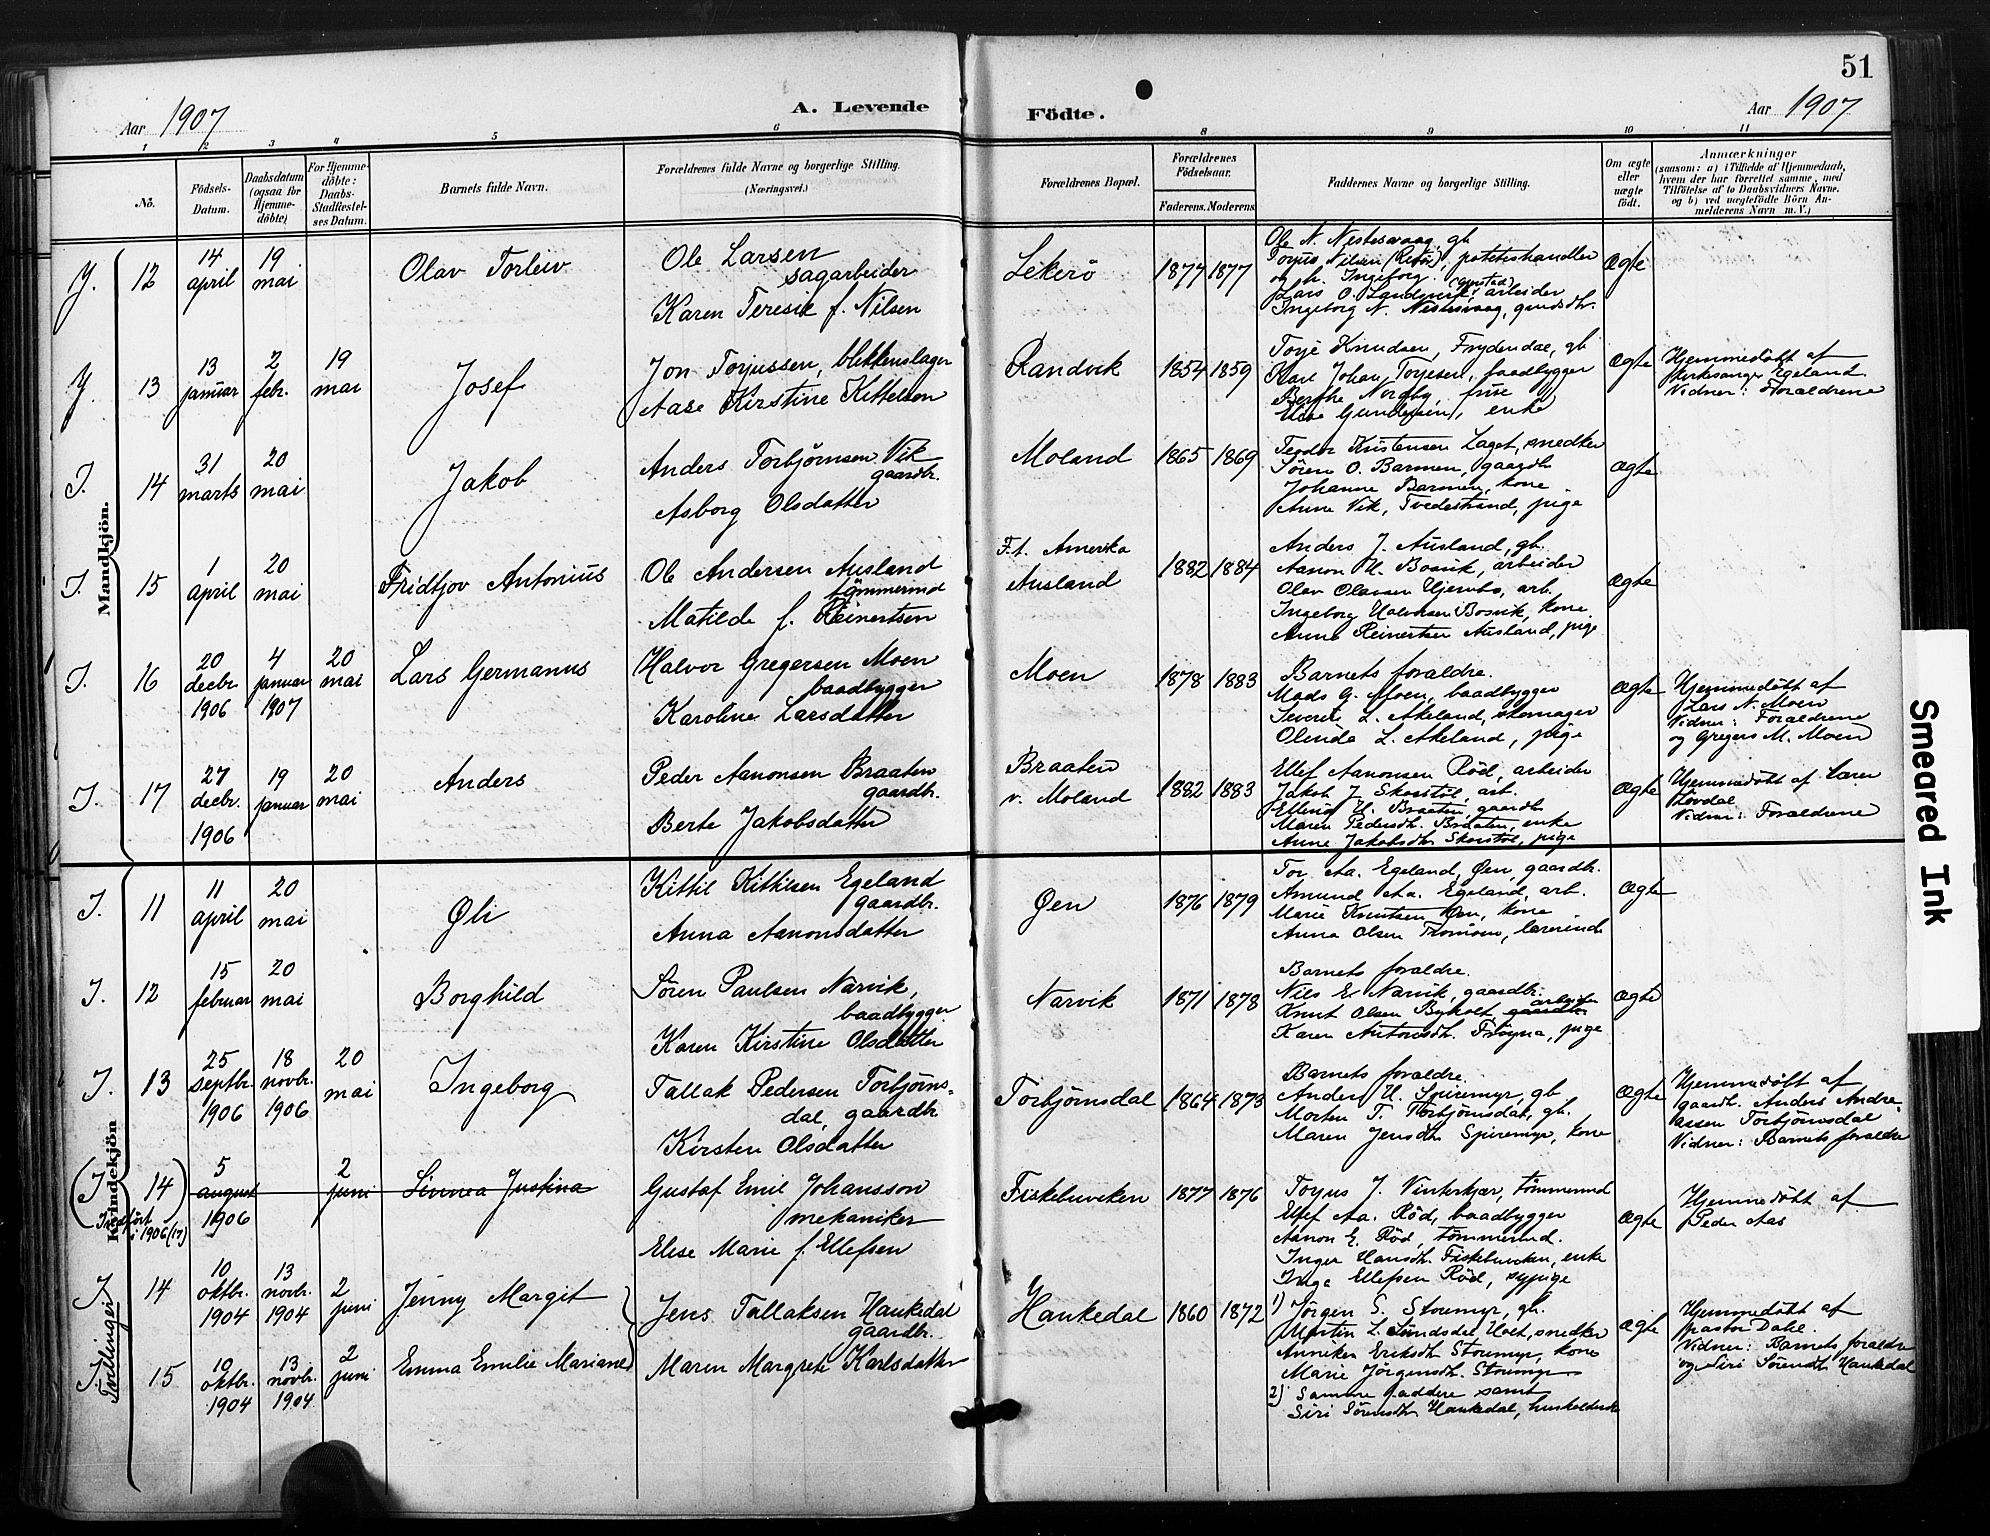 51
Aar 1907
A. Levende
Födte.
Aar 1907
1 2 3 4 5 6 8 9 10 11
No.
Födsels-
Datum.
Daabsdatum
(ogsaa for
Hjemme-
döbte)
For Hjemme-
döbte:
Daabs
Stadfæstel-
ses Datum.
Barnets fulde Navn.
Forældrenes fulde Navne og borgerlige Stilling.
(Næringsvei.)
Forældrenes Bopæl.
Forældrenes
Födselsaar.
Faderens. Moderens.
Faddernes Navne og borgerlige Stilling.
Om ægte
eller
uægte
födt.
Anmærkninger
(saasom: a) i Tilfælde af Hjemmedaab,
hvem der har forrettet samme, med
Tilföielse af to Daabsvidners Navne.
og b) ved uægtefödte Börn An-
melderens Navn m. V.)
Mandkjön.
Y. 12
14
april
19
mai
Olav Torleiv
Ole Larsen
sagarbeider
Karen Teresie f. Nilsen
Lekerö
1877 1877
Ole N. Nestesvaag, gb.
Torjus Nilsen potetishandler
og h. Ingeborg
Lars O. Landverk, arbeider
Ingeborg N. Nestesvaag, gaardsdtr.
Ægte
Y. 13
13
januar
2
febr.
19
mai
Josef
Jon Torjussen, blikkenslager
Aase Kirstine Kittelsen
Randvik
1854 1859
Torje Knudsen, Frydendal, gb.
Karl Johan Torjesen, baadbygger
Berthe Nordby, frue
Elise Gundersen, enke
Ægte
Hjemmedöbt af
kirkesanger Egeland
Vidner: Forældrene
I. 14
31
marts
20
mai
Jakob
Anders Torbjørnsen Vik
gaardbr.
Asborg Olsdatter
Moland
1865 1869
Teodor Kristensen Laget, snedker
Sören O. Barmen, gaardb.
Johanne Barmen, kone
Anne Vik, Tvedestrand, pige
Ægte
I. 15
1
april
20
mai
Fridtjov Antonius
Ole Andersen Ausland
tömmermd
Matilde f. Reinertsen
F.t. Amerika
Ausland
1882 1884
Anders J. Ausland, gb.
Aanon H. Bosvik, arbeider
Olav Olavsen arb.
Ingeborg Halvorsen Bosvik, kone
Anna Reinertsen Ausland, pige
Ægte
I. 16
20
decbr.
1906
4
januar
1907
20
mai
Lars Germanus
Halvor Gregersen Moen
baadbygger
Karoline Larsdatter
Moen
1878 1883
Barnets forældre.
Mads G. Moen, baadbygger
Severin L. Akeland, skomager
Olinda L. Akeland, pige
Ægte
Hjemmedöbt af
Lars N. Moen
Vidner: Forældrene
og Gregers M. Moen
I. 17
27
decbr.
1906
19
januar
20
mai
Anders
Peder Aanonsen Braaten
gaardbr.
Berte Jakobsdatter
Braaten
v. Moland
1882 1883
Ellef Aanonsen Röd, arbeider
Jakob J. Skorstöl, arb.
Braaten, gaardb.
Maren Pedersdtr. Braaten, enke
Anne Jakobsdtr. Skorstöl, pige
Ægte
Hjemmedöbt af lærer
Lövdal
Vidner: Forældrene
Kvindekjön
I. 11
11
april
20
mai
Øli
Kittil Kittilsen Egeland
gaardbr.
Anna Aanonsdatter
Øen
1876 1879
Tor Aa. Egeland, Øen, gaardb.
Amund Aa. Egeland, arb.
Marie Knutsen Øen, kone
Anna Olsen lærerinde
Ægte
I. 12
15
februar
20
mai
Borghild
Sören Paulsen Narvik,
baadbygger
Karen Kirstine Olsdatter
Narvik
1871 1878
Barnets forældre.
Nils E. Narvik, gaardb.
arbeider
Knut Olsen Byholt, gaardb.
Karen Antonsdtr. Fröyna, pige
Ægte
I. 13
25
septbr.
1906
18
novbr.
1906
20
mai
Ingeborg
Tallak Pedersen Torbjörns-
dal, gaardb.
Kirsten Olsdatter
Torbjörnsdal
1864 1873
Barnets forældre.
Anders H. Spiremyr, gb.
Morten T. Torbjörnsdal, gb.
Maren Jensdtr. Spiremyr, kone
Ægte
Hjemmedöbt af
gaardb. Anders Andre-
assen Torbjörnsdal
Vidner: Barnets forældre
(I. 14)
Indført
i 1906 (17)
5
august
1906
2
juni
Linnea Justina
Gustaf Emil Johansson
mekaniker
Elise Marie f. Ellefsen
Fiskebuviken
1877 1876
Torjus J. Vinterkjær, tömmermd
Ellef Aa. Röd, baadbygger
Aanon E. Röd, tömmermd.
Inger Hansdtr. Fiskebuviken, enke
Inga Ellefsen Röd, sypige
Ægte
Hjemmedöbt af
Peder Aas
Tvillinger
I. 14
10
oktbr.
1904
13
novbr.
1904
2
juni
Jenny Margit
Jens Tallaksen Haukedal
gaardbr.
Maren Margrete Karlsdatter
Haukedal
1860 1872
1) Jörgen S. Storemyr, gb.
Morten L. Sundsdal, Holt, snedker
Anniken Eriksdtr. Storemyr, kone
Marie Jörgensdtr. Storemyr
2) Samme faddere samt
Siri Sörensdtr. Haukedal, husholderske
Ægte
Hjemmedöbt af
pastor Dahl.
Vidner: Barnets forældre
og Siri Sörensdtr. Haukedal
I. 15
10
oktbr.
1904
13
novbr.
1904
2
juni
Emma Emilie Mariane
Smeared Ink